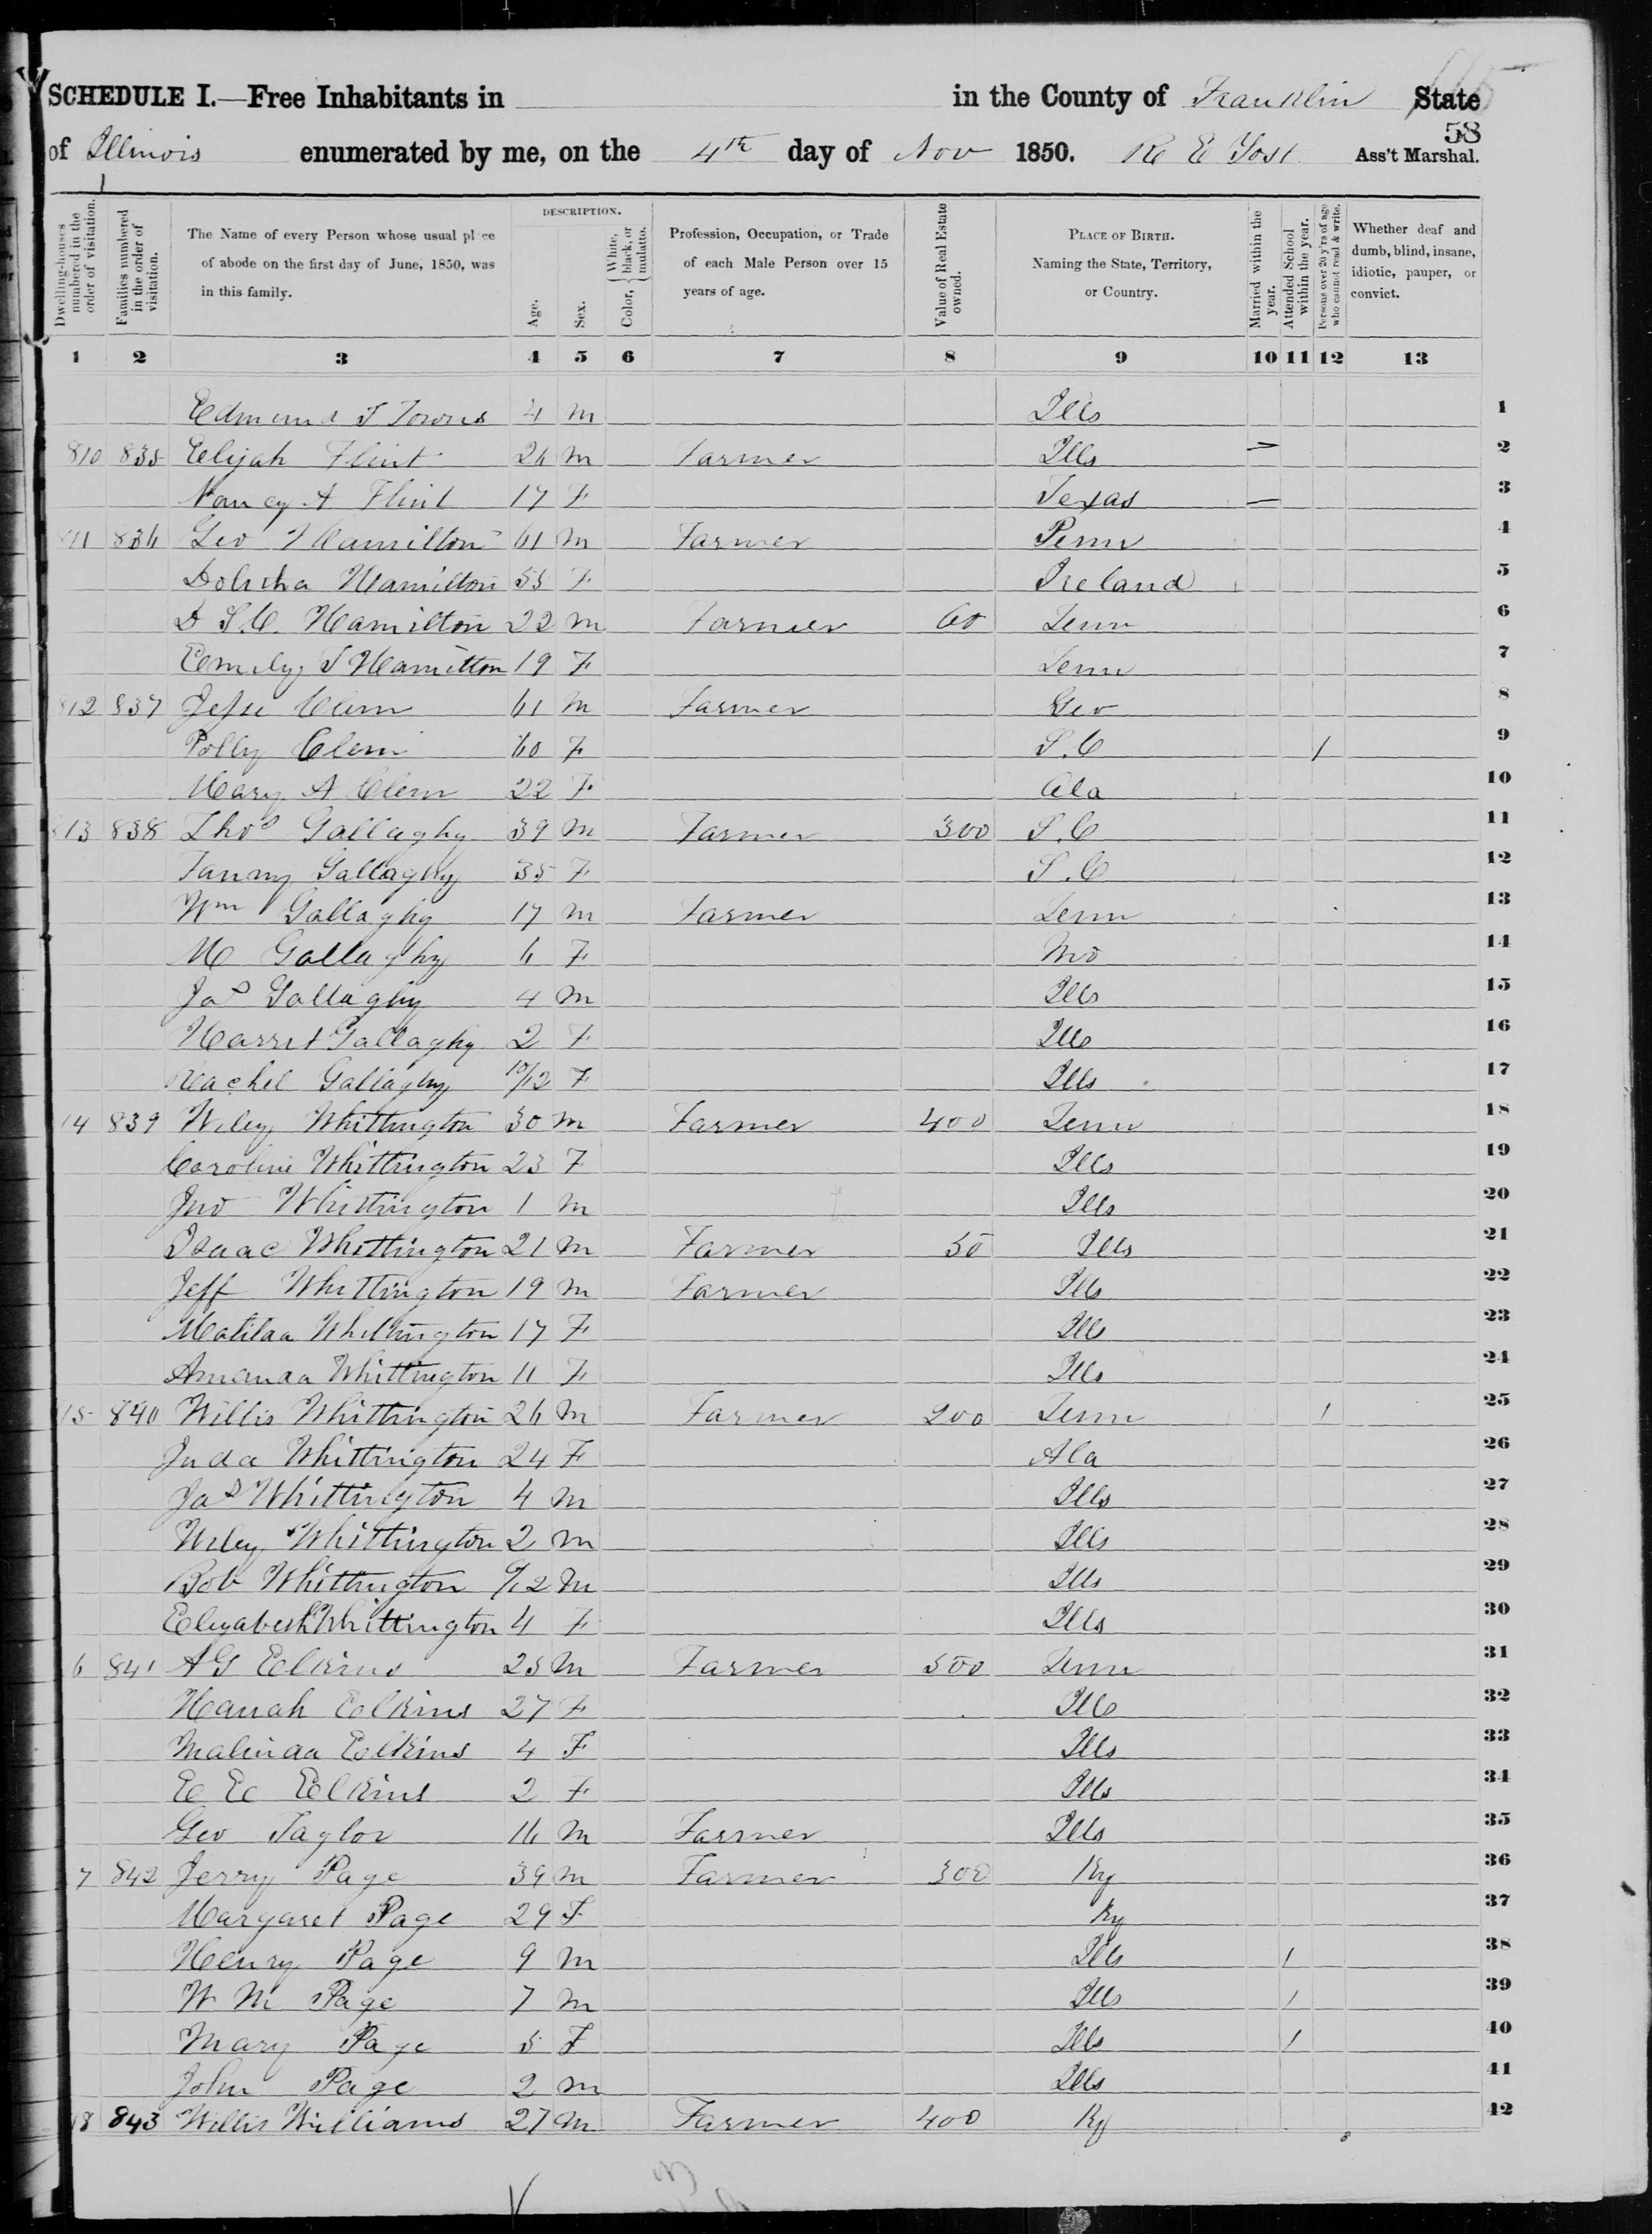 SCHEDULE I.—Free Inhabitants in in the County of Franklin State
58
of Illinois enumerated by me, on the 4th day of Nov 1850. R E Yost Ass't Marshal.
Dwelling-houses numbered in the order of visitation.
Families numbered in the order of visitation.
The Name of every Person whose usual place of abode on the first day of June, 1850, was in this family.
DESCRIPTION.
Age.
Sex.
Color, { White, black, or mulatto.
Profession, Occupation, or Trade of each Male Person over 15 years of age.
Value of Real Estate owned.
PLACE OF BIRTH. Naming the State, Territory, or Country.
Married within the year.
Attended School within the year.
Persons over 20 y'rs of age who cannot read & write.
Whether deaf and dumb, blind, insane, idiotic, pauper, or convict.
1 2 3 4 5 6 7 8 9 10 11 12 13
Edmund T Towns 4 m Ills 1
810 835 Elijah Flint 26 m Farmer Ills 2
Nancy A Flint 17 F Texas 3
811 836 Geo Hamilton 61 m Farmer Penn 4
Hamilton 55 F Ireland 5
D S.C. Hamilton 22 m Farmer 60 Tenn 6
Emily S Hamilton 19 F Tenn 7
812 837 Jesse Clem 61 m Farmer Geo 8
Polly Clem 60 F S.C 1 9
Mary A Clem 22 F Ala 10
813 838 Thos Gallaghy 39 m Farmer 300 S.C 11
Fanny Gallaghy 35 F S.C 12
Wm Gallaghy 17 m Farmer Tenn 13
M Gallaghy 6 F Mo 14
Jas Gallaghy 4 m Ills 15
Harret Gallaghy 2 F Ills 16
Rachel Gallaghy 10/12 F Ills 17
14 839 Wiley Whittington 30 m Farmer 400 Tenn 18
Caroline Whittington 23 F Ills 19
Jno Whittington 1 m Ills 20
Isaac Whittington 21 m Farmer 50 Ills 21
Jeff Whittington 19 m Farmer Ills 22
Matilda Whittington 17 F Ills 23
Amanda Whittington 11 F Ills 24
15 840 Willis Whittington 26 m Farmer 200 Tenn 1 25
Juda Whittington 24 F Ala 26
Jas Whittington 4 m Ills 27
Wiley Whittington 2 m Ills 28
Bob Whittington /12 m Ills 29
Elizabeth Whittington 4 F Ills 30
6 841 A G Elkins 25 m Farmer 500 Tenn 31
Hanah Elkins 27 F Ills 32
Malinda Elkins 4 F Ills 33
E E Elkins 2 F Ills 34
Geo Taylor 16 m Farmer Ills 35
7 842 Jerry Page 39 m Farmer 300 Ky 36
Margaret Page 29 F Ky 37
Henry Page 9 m Ills 1 38
W M Page 7 m Ills 1 39
Mary Page 5 F Ills 1 40
John Page 2 m Ills 41
18 843 Willis Williams 27 m Farmer 400 Ky 42